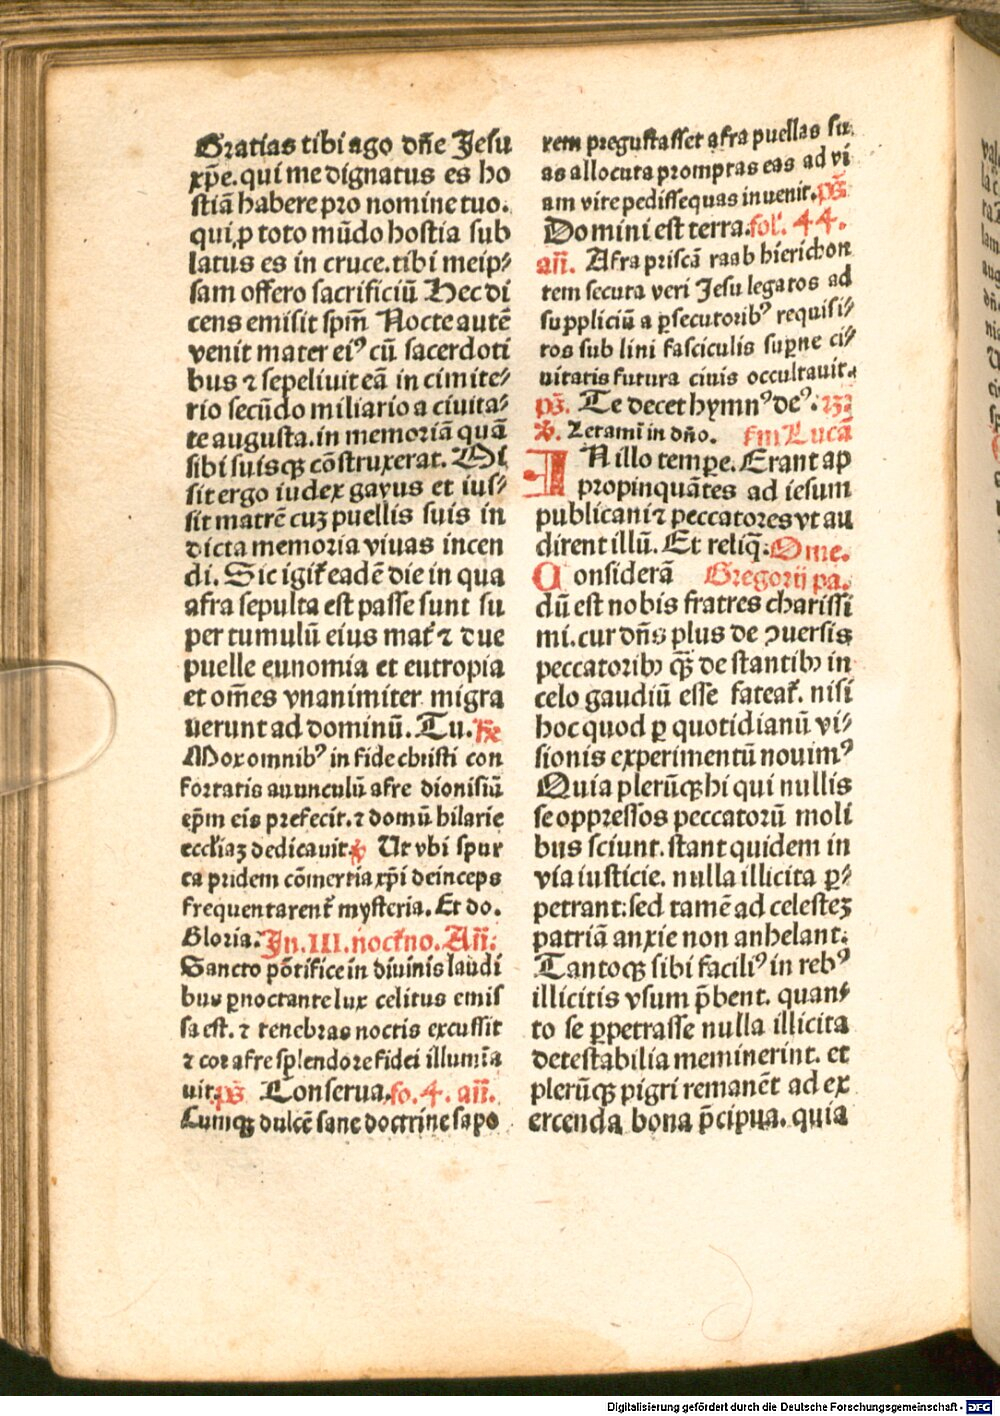 Gratias tibi ago dñe Jesu
xp̄e. qui me dignatus es ho
stiā habere pro nomine tuo.
qui ꝓ toto mūdo hostia sub
latus es in cruce. tibi meip⸗
sam offero sacrificiū Hec di
cens emisit spm̄ Nocte autē
venit mater eiꝰ cū sacerdoti
bus ⁊ sepeliuit eā in cimite⸗
rio secūdo miliario a ciuita⸗
te augusta. in memoriā quā
sibi suisqꝫ cōstruxerat. Mi
sit ergo iudex gayus et ius⸗
sit matrē cuꝫ puellis suis in
dicta memoria viuas incen
di. Sic igit᷑ eadē die in qua
afra sepulta est passe sunt su
per tumulū eius mat᷑ ⁊ due
puelle eunomia et eutropia
et om̄es vnanimiter migra
uerunt ad dominū. Tu. R̄e
Mox omnibꝰ in fide christi con
fortatis auunculū afre dionisiū
ep̄m eis prefecit. ⁊ domū hilarie
eccl̄iaꝫ dedicauit. ℣ Ut vbi spur
ca pridem cōmertia xp̄i deinceps
frequentarent᷑ mysteria. Et do.
Gloria. In. III. noct᷑no. Añ.
Sancto pōtifice in diuinis laudi
bus ꝑnoctante lux celitus emis
sa est. ⁊ tenebras noctis excussit
⁊ cor afre splendore fidei illumīa
uit. pš Conserua. fo. 4. añ.
Cumqꝫ dulcē sane doctrine sapo
rem pregustasset afra puellas su
as allocuta promptas eas ad vi
am vite pedissequas inuenit. pš
Domini est terra. fol. 44.
añ. Afra priscā raab hierichon
tem secuta veri Jesu legatos ad
suppliciū a ꝑsecutoribꝰ requisi⸗
tos sub lini fasciculis suꝑne ci⸗
uitatis futura ciuis occultauit.
pš. Te decet hymnꝰ deꝰ.
℣. Letami in dño. scd̄m Lucā
IN illo tempꝑe. Erant ap
propinquātes ad iesum
publicani ⁊ peccatores vt au
dirent illū. Et reliq̄. Ome.
Considerā Gregorij pa.
dū est nobis fratres charissi
mi. cur dñs plus de ꝯuersis
peccatoribꝫ q̄ꝫ de stantibꝫ in
celo gaudiū esse fateat᷑. nisi
hoc quod ꝑ quotidianū vi⸗
sionis experimentū nouimꝰ
Quia plerūqꝫ hi qui nullis
se oppressos peccatorū moli
bus sciunt. stant quidem in
via iusticie. nulla illicita ꝑ⸗
petrant: sed tamē ad celesteꝫ
patriā anxie non anhelant.
Tantoqꝫ sibi faciliꝰ in rebꝰ
illicitis vsum p̄bent. quan⸗
to se ꝑpetrasse nulla illicita
detestabilia meminerint. et
plerūqꝫ pigri remanēt ad ex
ercenda bona p̄cipua. quia
Digitalisierung gefördert durch die Deutsche Forschungsgemeinschaft - DFG